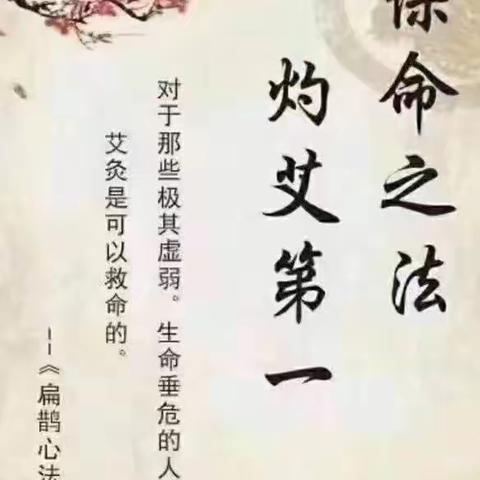 保命之法
灼艾第一
对于那些极其虚弱。生命垂危的人
艾灸是可以救命的。
--《扁鹊心法